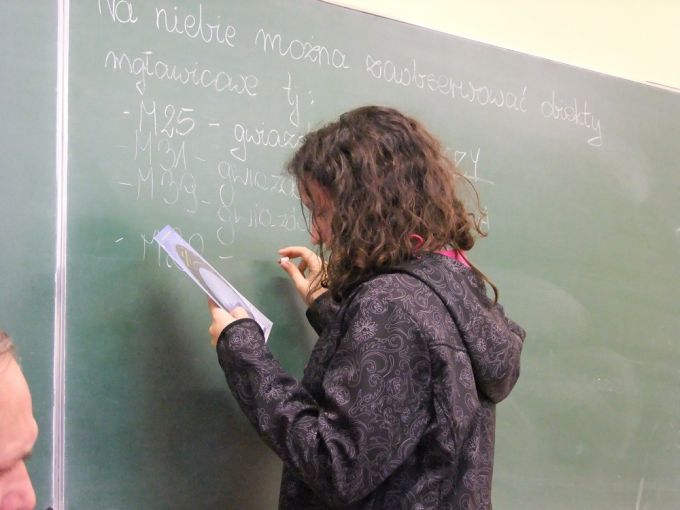 Na niebie można zaobserwować obiekty
mgławicowe tj:
- M25 - gwiazd
- M31 - gwiazd
- M39 - gwiazd
- M